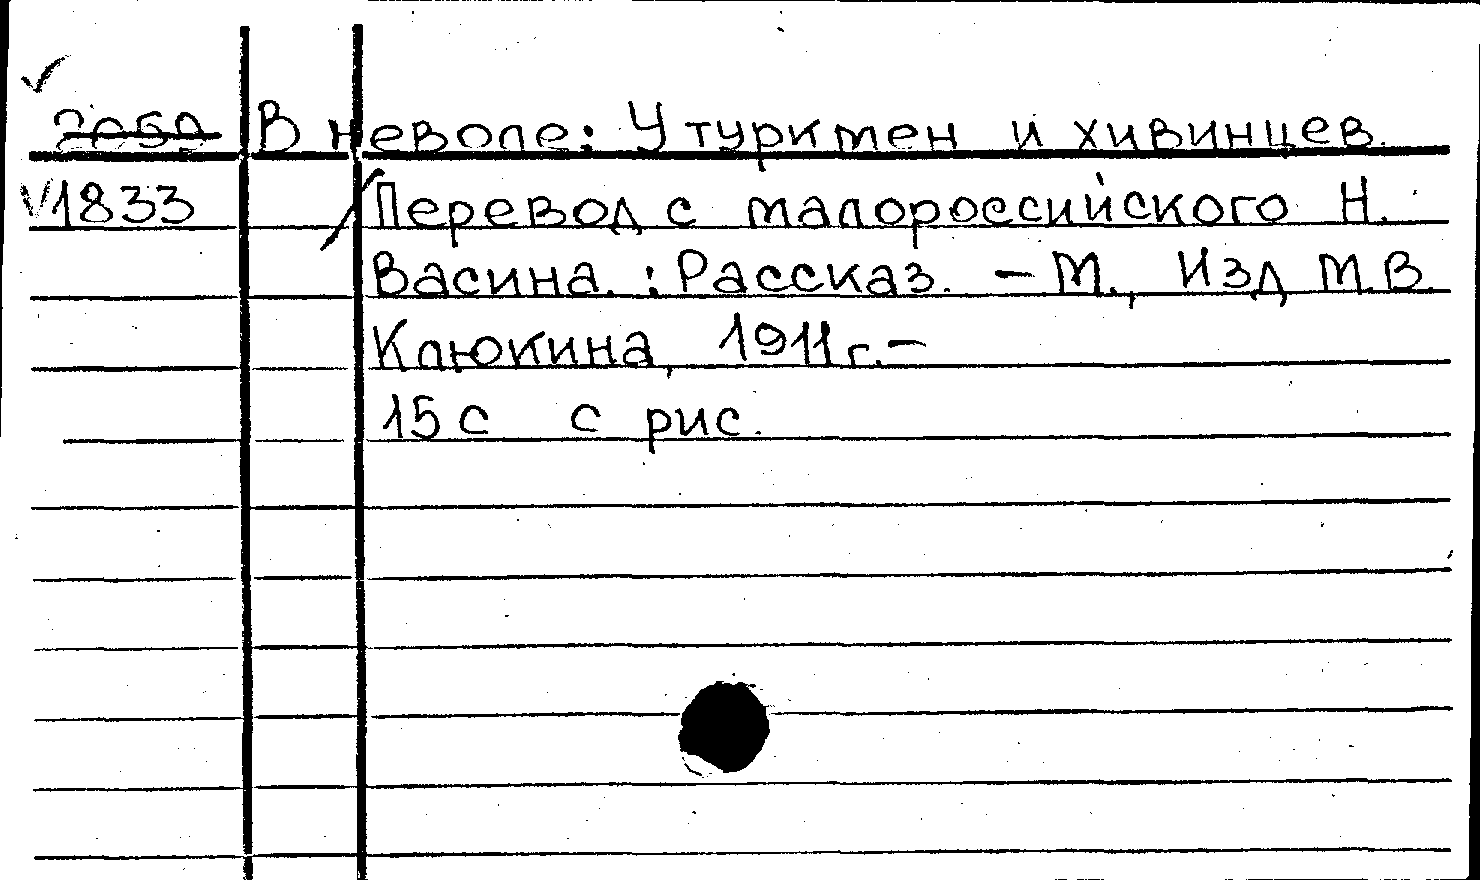 2059 В неволе: У туркмен и хивинцев.
1833 / Перевод с малороссийского Н.
Васина. : Рассказ. – М., Изд М.В.
Клюкина, 1911г.–
15 с с рис.